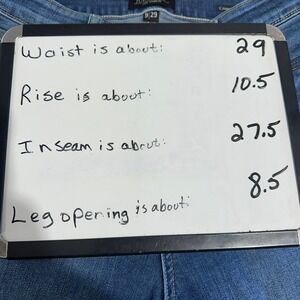 9/29
Waist is about: 29
Rise is about: 10.5
Inseam is about: 27.5
Leg opening is about: 8.5